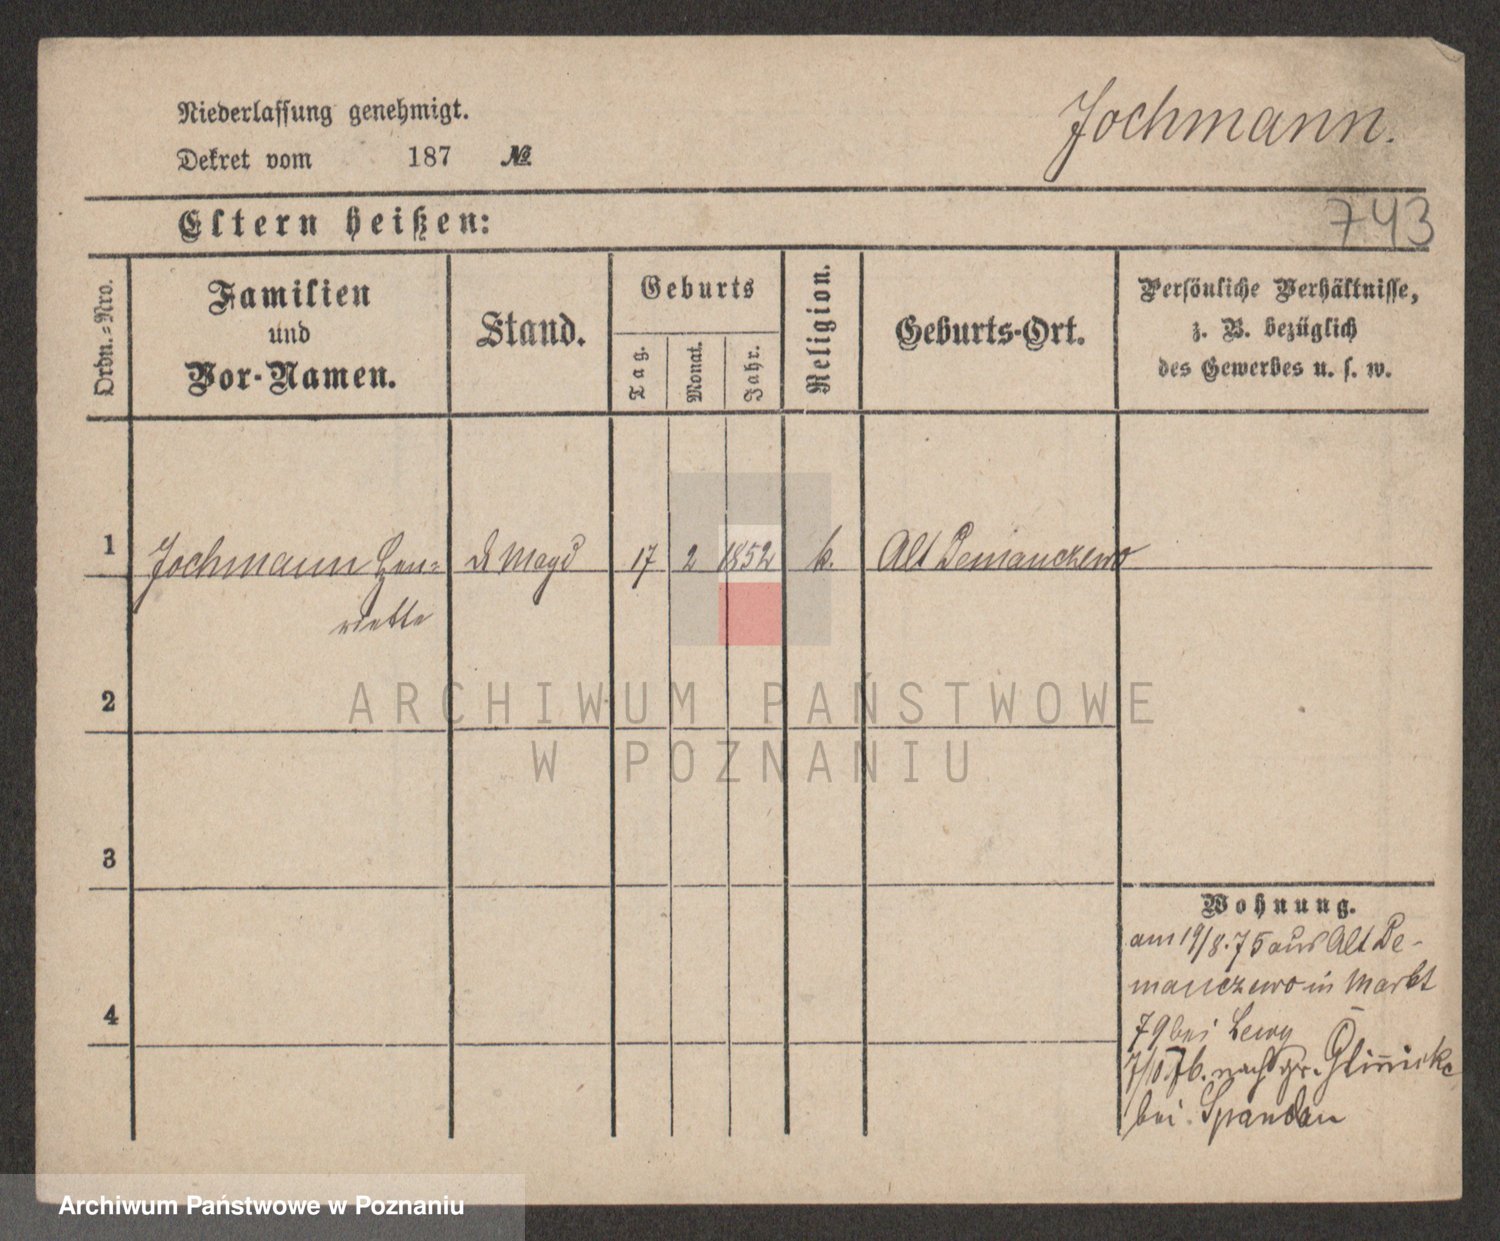 Niederlassung genehmigt.
Jochmann.
Dekret vom 187 №
Eltern heißen:
743
Ordn.-Nro.
Familien
und
Vor-Namen.
Stand.
Geburts
Tag.
Monat.
Jahr.
Religion.
Geburts-Ort.
Persönliche Verhältnisse,
z. B. bezüglich
des Gewerbes u. s. w.
1 Jochmann Hen= Magd 17 2 1852 k. Alt Demanczewo
riette
2
ARCHIWUM PAŃSTWOWE
W POZNANIU
3
Wohnung.
am 19/8.75 aus Alt De-
manczewo in Markt
4
79 bei Lewy
7/10.76. nach gr. Glinicke
bei Spandau
Archiwum Państwowe w Poznaniu